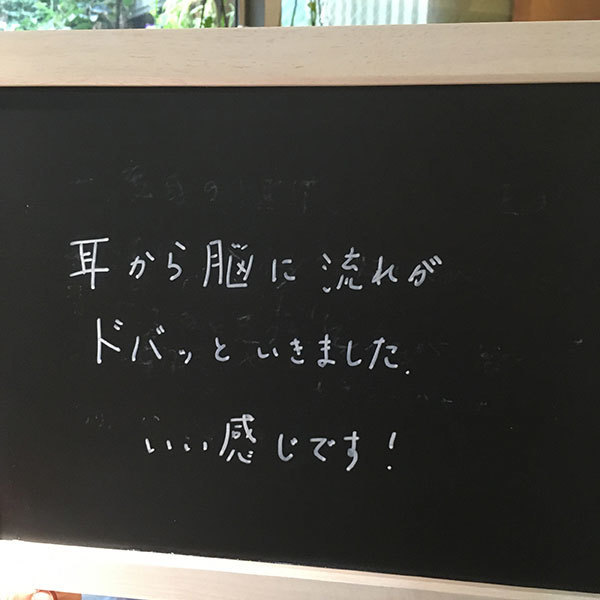 耳から脳に流れが
ドバッといきました.
いい感じです!